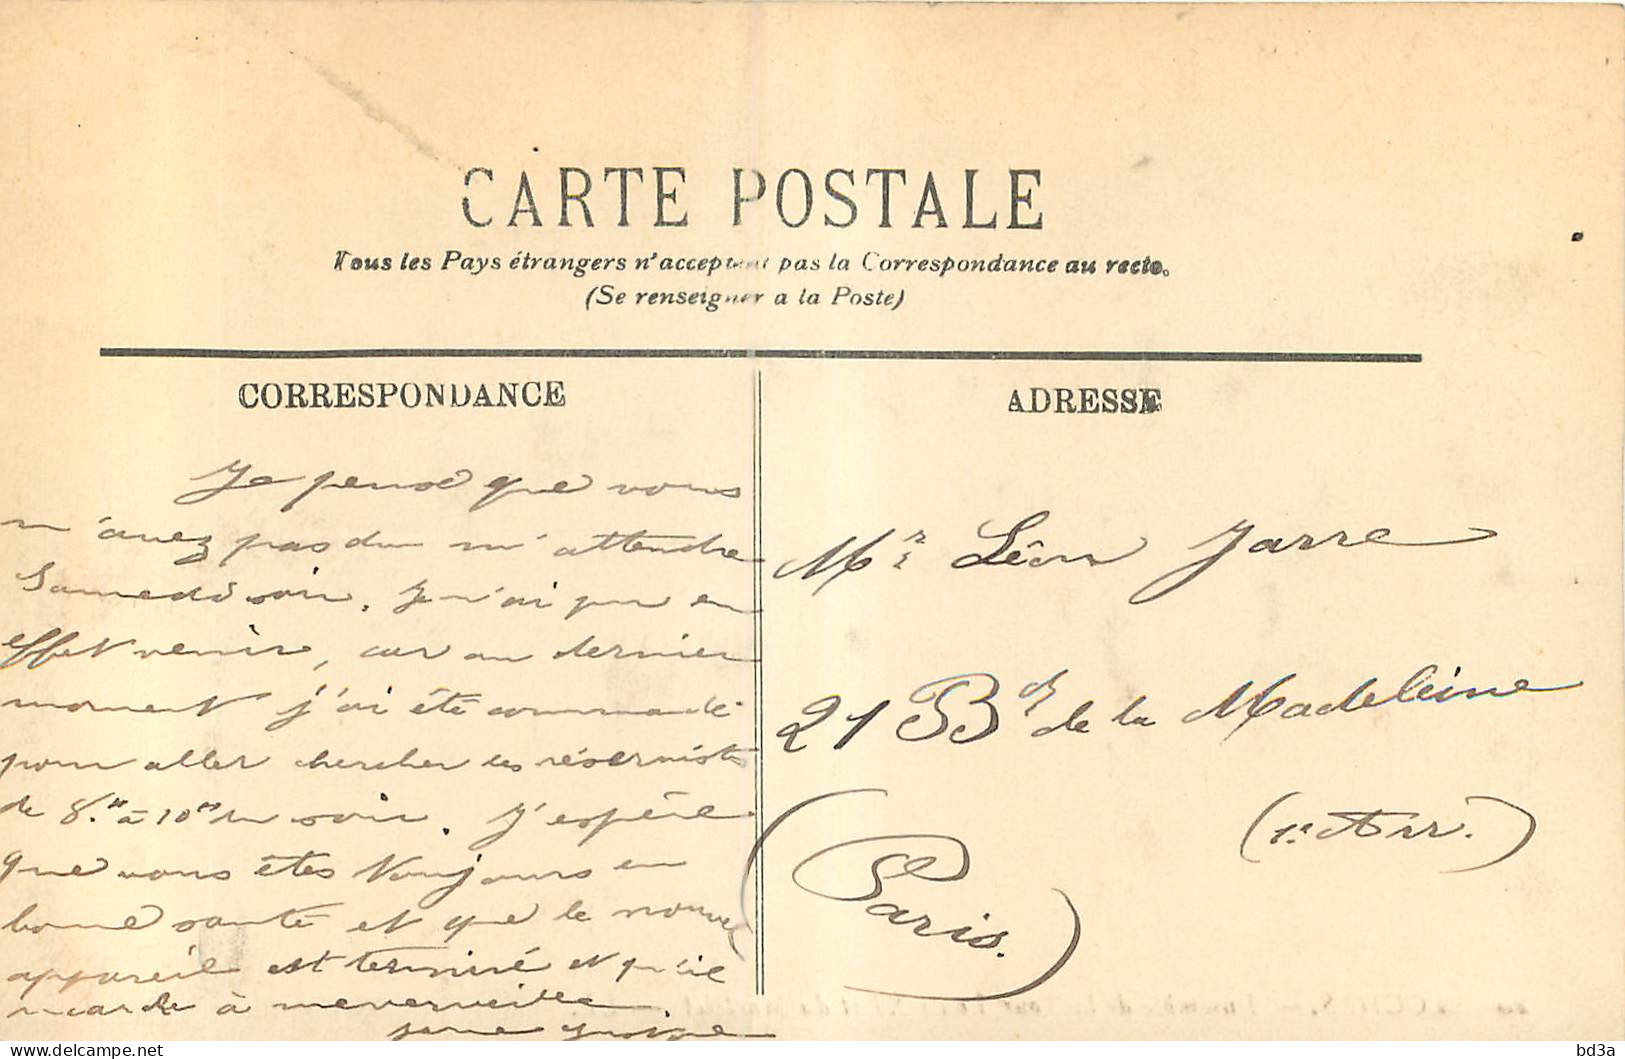 CARTE POSTALE
Tous les Pays étrangers n'acceptent pas la Correspondance au recto.
(Se renseigner a la Poste)
CORRESPONDANCE
ADRESSE
Je pense que vous
m'avez pas du m'attendre
Samedi soir. Je n'ai pu en
effet venir, car au dernier
moment j'ai été commandé
pour aller chercher les réservistes
de 8.h à 10h du soir. J'espère
que vous êtes toujours en
bonne santé et que le nouvel
appareil est terminé et qu'il
marche à merverveille.
Mr Léon Jarre
21 Bd de la Madeleine
(1er Arr.)
(Paris.)
bd3a